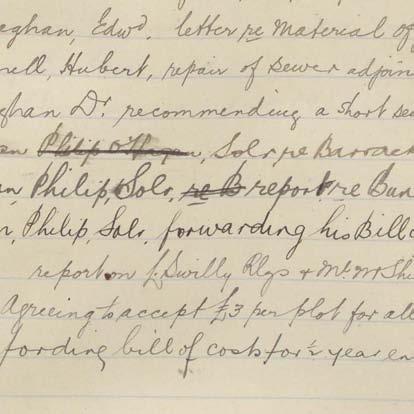 eghan, Edwd. letter re Material of
nell, Hubert, repair of Sewer adjoin
ghan Dr. recommending a short se
an Philip O'Hagan, Solr re Barrack
n Philip, Solr, re B report re Bun
n, Philip, Solr, forwarding his Bill o
report on L. Swilly Rlys & Mr. W Shi
Agreeing to accept £3 per plot for all
fording bill of costs for ½ year en